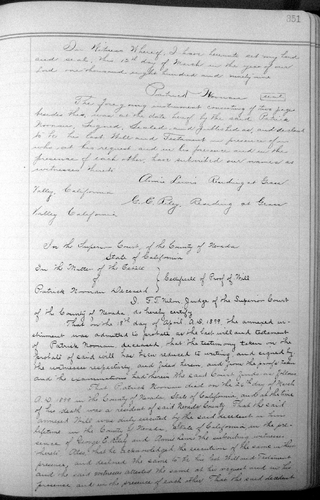 351
In Witness Whereof, I have hereunto set my hand
and seal, this 13th day of March in the year of our
Lord one thousand eight hundred and ninety nine
Patrick Noonan (seal)
The foregoing instrument consisting of two pages
besides this, was at the date hereof by the said Patrick
Noonan Signed, Sealed and published as, and declared
to be his last Will and Testament in presence of us
who at his request and in his presence and in the
presence of each other, have subscribed our names as
witnesses hereto
Annie Residing at Grass
Valley, California
Residing at Grass
Valley California
In the Superior Court, of the County of Nevada
State of California
In the Matter of the Estate
of
Patrick Noonan Deceased
Certificate of Proof of Will
I, F. T. Nilon, Judge of the Superior Court
of the County of Nevada do hereby certify
That on the day of April A.D. 1899, the annexed in-
strument was admitted to probate as the last will and testament
of Patrick Noonan deceased, that the testimony taken on the
probate of said will has been reduced to writing and signed by
the witnesses respectively and filed herein, and from the proofs taken
and the examination had herein the said Court finds as follows
That Patrick Noonan died on the day of March
A.D. 1899 in the County of Nevada, State of California, and at the time
of his death was a resident of said Nevada County. That the said
annexed Will was duly executed by the said decedent in his
lifetime in the County of Nevada, State of California, in the pre-
sence of George E. and Annie the subscribing witnesses
thereto. Also, that he acknowledged the execution of the same in their
presence, and declared the same to be his last Will and Testament
and the said witnesses attested the same at his request and in his
presence and in the presence of each other. That the said decedent